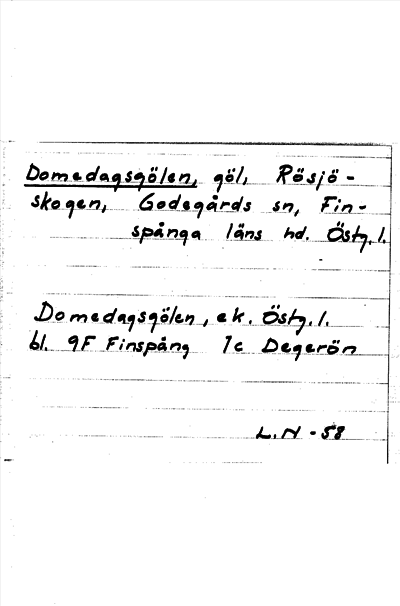 Domedagsgölen, göl, Rösjö-
skogen, Godegårds sn, Fin-
spånga läns hd. Östg. l.
Domedagsgölen, ek. Östg. l.
bl. 9F Finspång 1c Degerön
L. N - 58